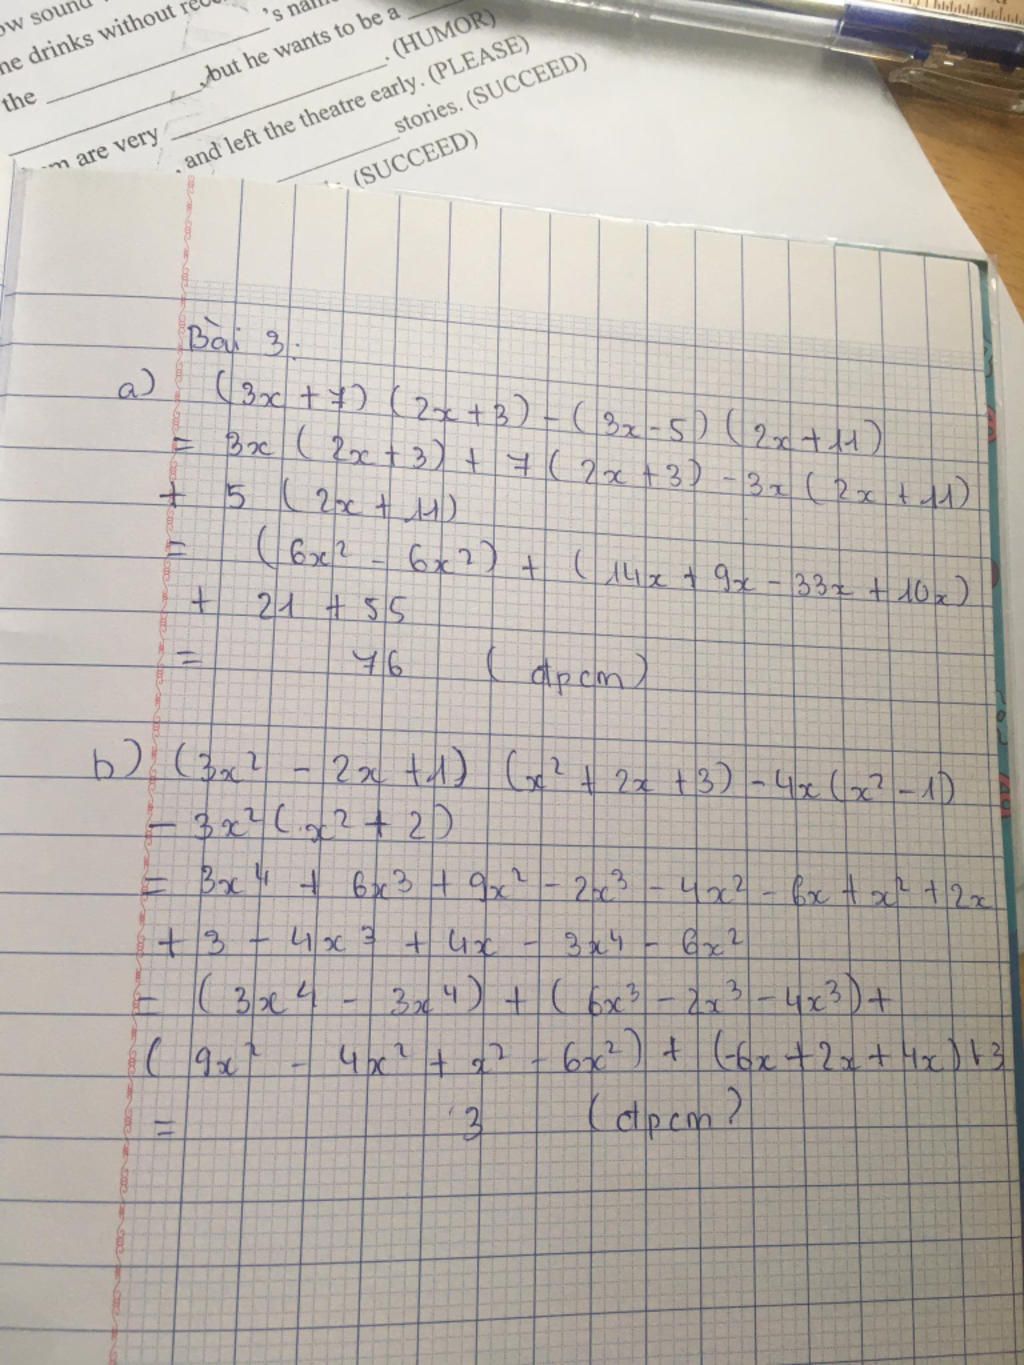 ow sound
he drinks without
the ________'s
________, but he wants to be a
________. (HUMOR)
are very ________, and left the theatre early. (PLEASE)
________ stories. (SUCCEED)
(SUCCEED)
Bài 3:
a) (3x + 7) (2x + 3) - (3x - 5) (2x + 11)
= 3x (2x + 3) + 7 (2x + 3) - 3x (2x + 11)
+ 5 (2x + 11)
= (6x² - 6x²) + (14x + 9x - 33x + 10x)
+ 21 + 55
= 76 (đpcm)
b) (3x² - 2x + 1) (x² + 2x + 3) - 4x (x² - 1)
- 3x² (x² + 2)
= 3x⁴ + 6x³ + 9x² - 2x³ - 4x² - 6x + x² + 2x
+ 3 - 4x³ + 4x - 3x⁴ - 6x²
= (3x⁴ - 3x⁴) + (6x³ - 2x³ - 4x³) +
(9x² - 4x² + x² - 6x²) + (-6x + 2x + 4x) + 3
= 3 (đpcm)